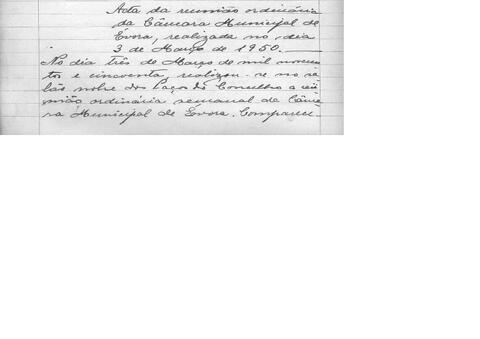 Acta da reunião ordinária
da Câmara Municipal de
Evora, realizada no dia
3 de Março de 1950.
No dia três de Março de mil novecen
tos e cincoenta, realizou-se no sa
lão nobre dos Paços do Concelho a reu
nião ordinária semanal da Câma
ra Municipal de Evora. Comparece